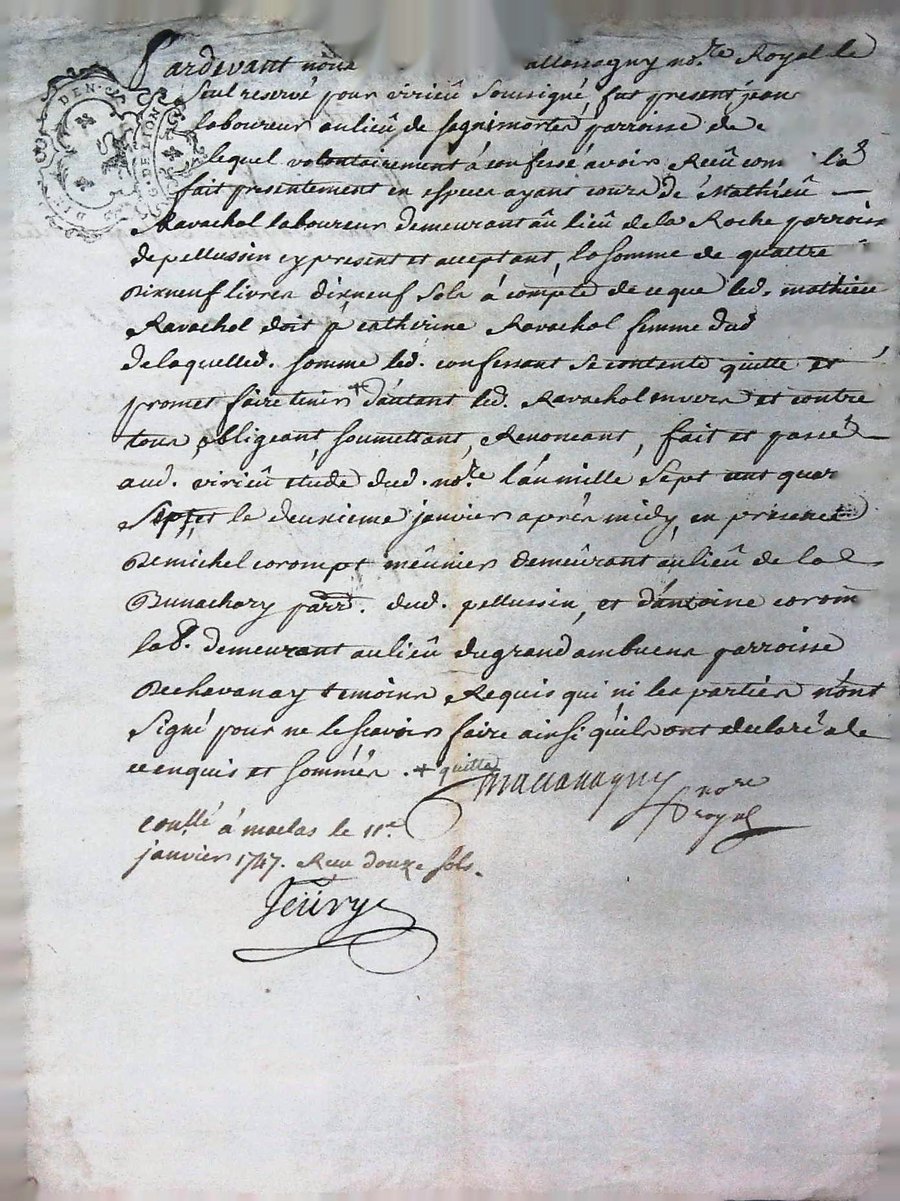 Pardevant nous allossagny no.re Royal le
seul reservé pour virieû soussigné, fut present jean
laboureur au lieu de sagnimorte parroisse de
lequel volontairement à confessé avoir Reçû com
fait presentement en especes ayant cours de Mathieû
Ravachol laboureur demeurant aû lieû de la Roche parroisse
de pellussin cy present et acceptant, la somme de quattre
Dixneuf livres dixneuf sols à compte de ce que led. mathieu
Ravachol doit à catherine Ravachol femme dud
de laquelle d. somme led. confessant se contente quitte et
promet faire tenir + d'autant led. Ravachol envers et contre
tous, obligeant, soumettant, Renonçant, fait et passé
aud. virieû etude dud. no.re l'an mille sept cent quar
sept, et le deuxieme janvier après midy, en presence
De michel corompt meûnier demeûrant au lieû de la
Bunachery parr. dud. pellussin, et d'antoine corom
lab.r demeurant au lieû du grand ambuent parroisse
De chavanay temoins Requis qui ni les parties n'ont
signé pour ne le sçavoir faire ainsi qu'ils ont declaré de
ce enquis et sommés. + quitte
no.re
royal
Coullé à maclas le 11.e
janvier 1747. Reçu douze sols.
DEN.
G.D.DE LION